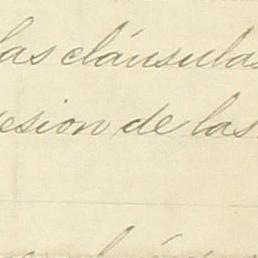 las cláusulas
esion de las